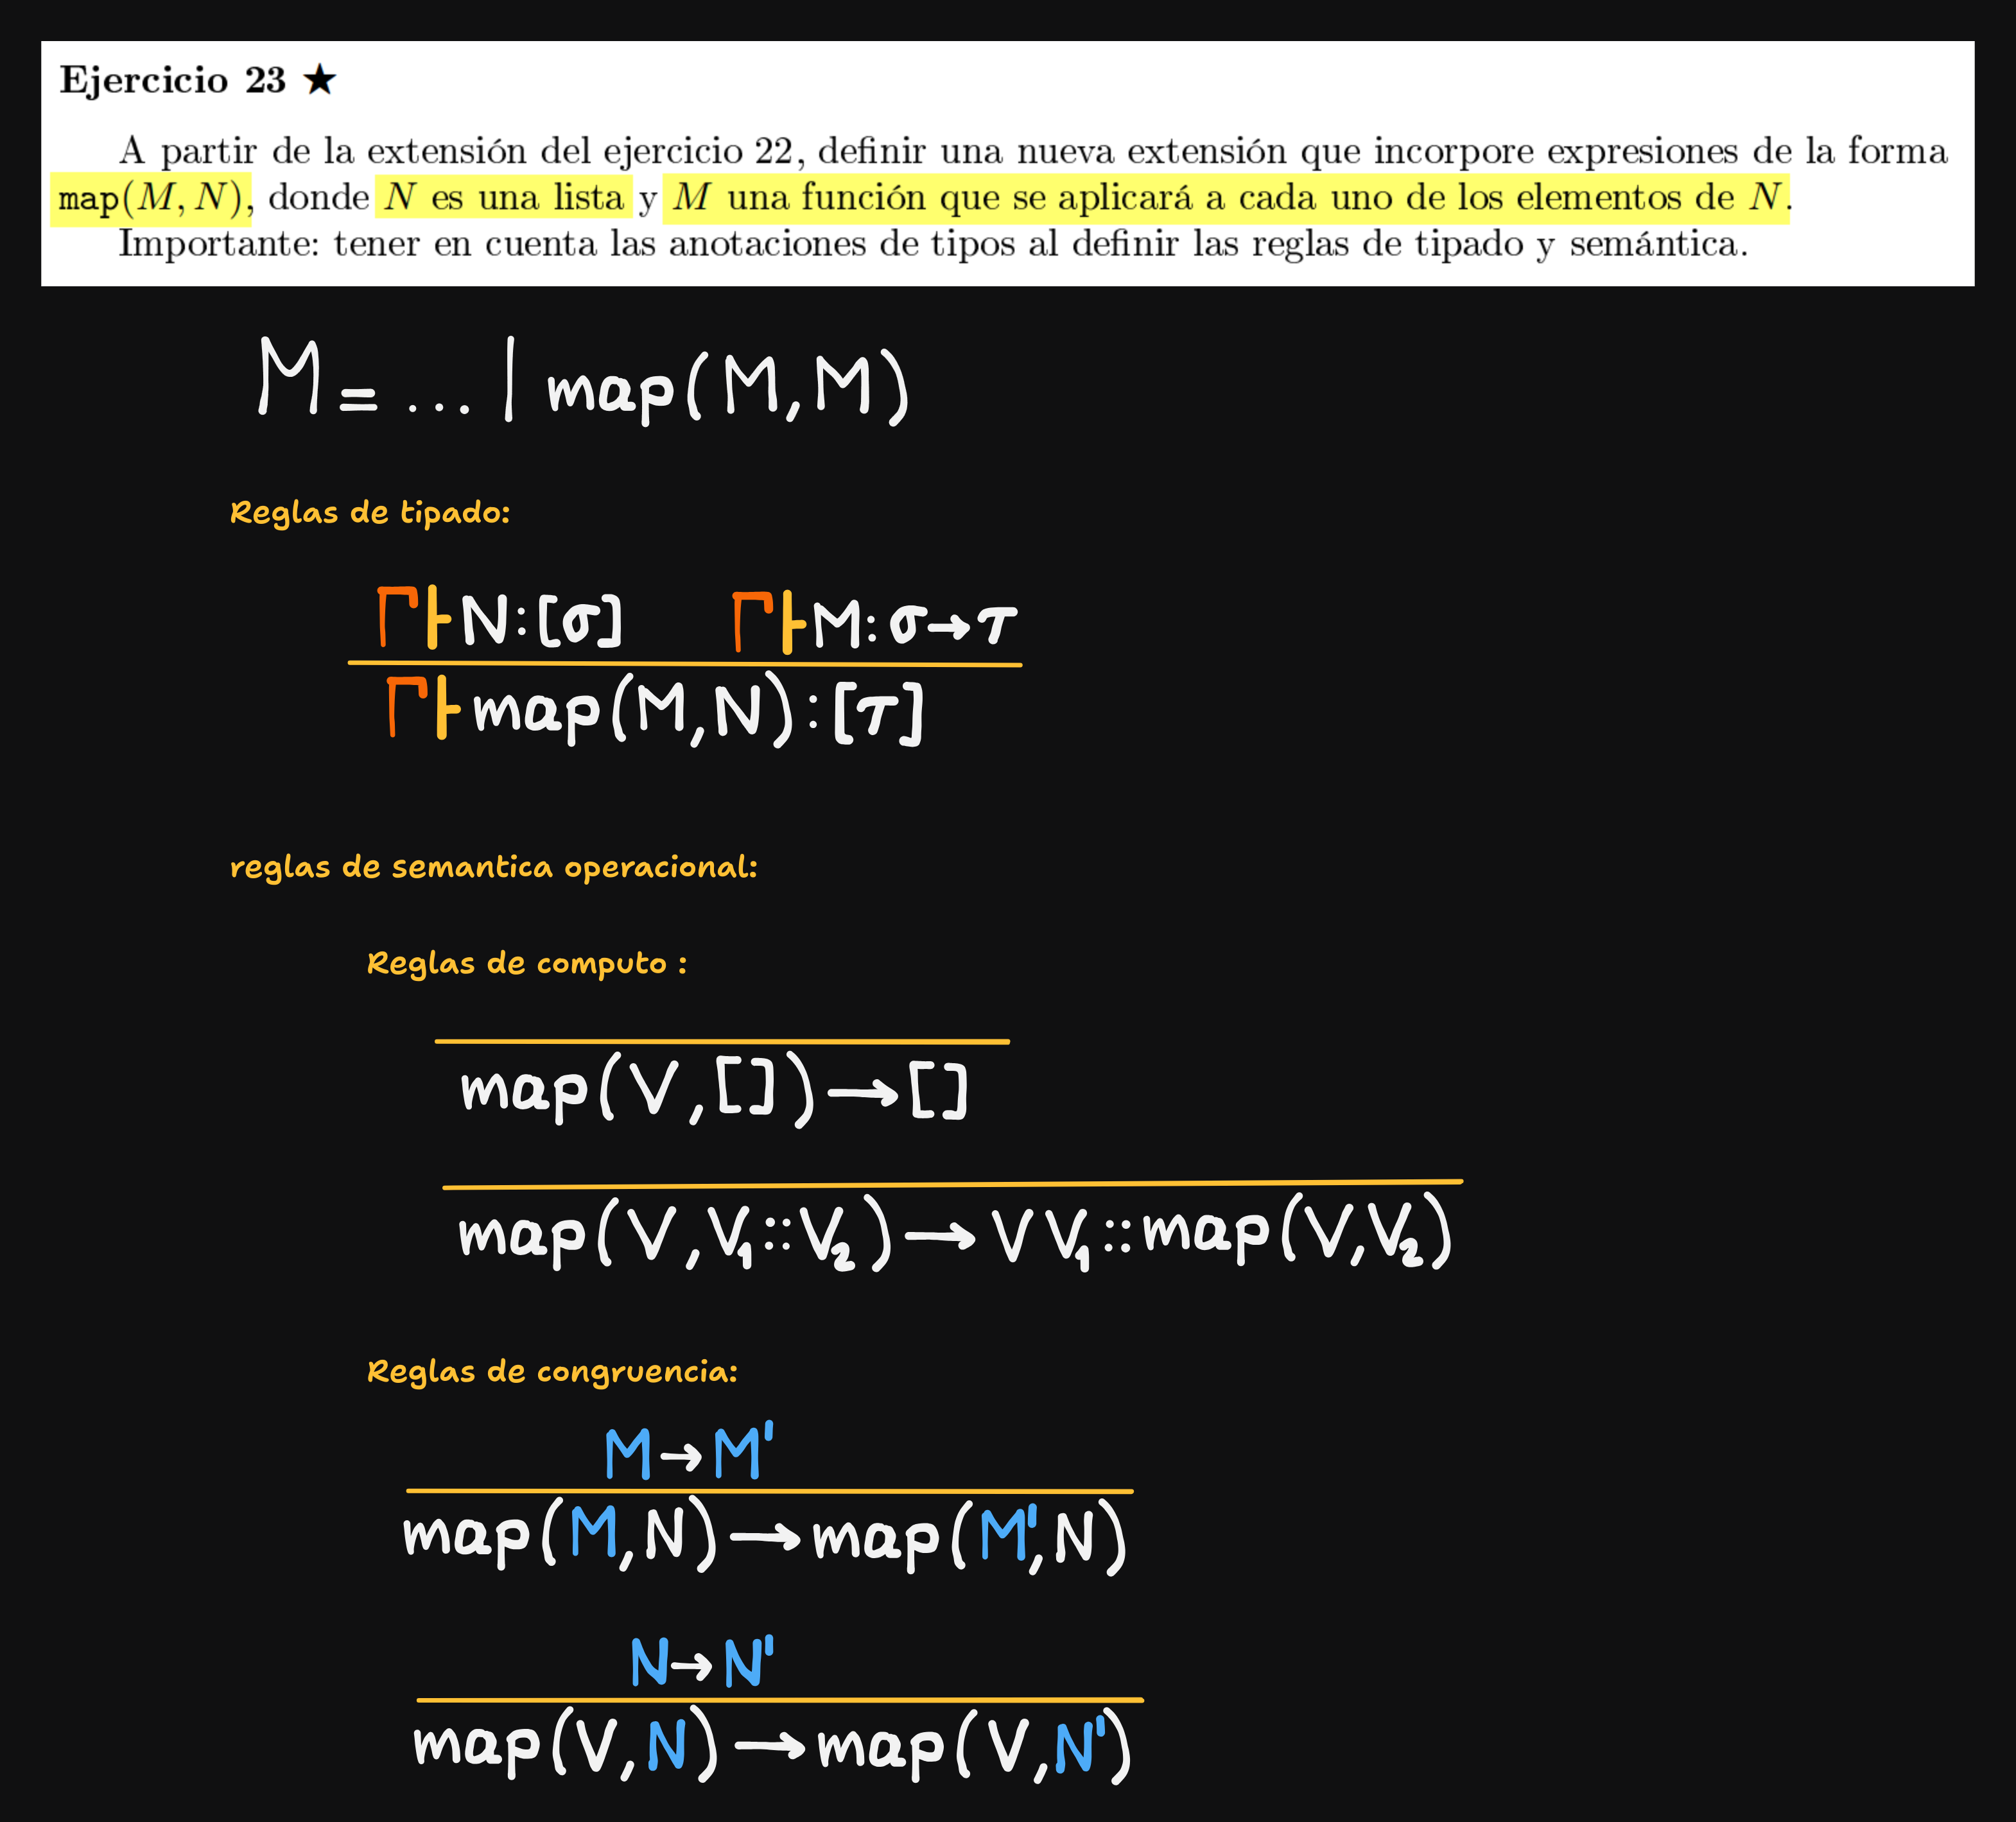 Ejercicio 23 ★
A partir de la extensión del ejercicio 22, definir una nueva extensión que incorpore expresiones de la forma
map(M, N), donde N es una lista y M una función que se aplicará a cada uno de los elementos de N.
Importante: tener en cuenta las anotaciones de tipos al definir las reglas de tipado y semántica.
M = ... | map(M,M)
Reglas de tipado:
Γ⊢N:[σ] Γ⊢M:σ→τ
Γ⊢map(M,N):[τ]
reglas de semantica operacional:
Reglas de computo :
map(V,[])→[]
map(V,V₁::V₂)→V V₁::map(V,V₂)
Reglas de congruencia:
M→M'
map(M,N)→map(M',N)
N→N'
map(V,N)→map(V,N')